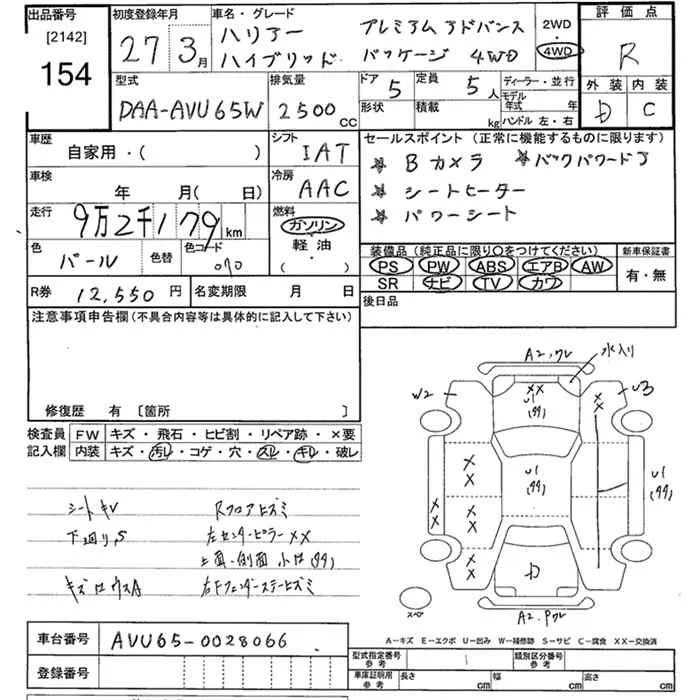 出品番号
[2142]
154
初度登録年月
27 3月
車名・グレード
ハリアー プレミアム アドバンス
ハイブリッド パッケージ 4WD
2WD
4WD
評価点
R
外装 内装
D C
型式
DAA-AVU65W
排気量
2500 CC
ドア 5
定員 5人
形状
積載 kg
ディーラー・並行
モデル年式 年
ハンドル 左・右
車歴
自家用・( )
シフト
IAT
車検
年 月( 日)
冷房
AAC
走行
9万2千179 km
燃料
ガソリン
軽油
( )
色
パール
色替
色コード
070
セールスポイント (正常に機能するものに限ります)
Bカメラ バックパワードア
シートヒーター
パワーシート
装備品 (純正品に限り○をつけてください)
PS PW ABS エアB AW
SR ナビ TV カワ
新車保証書
有・無
R券 12,550円
名変期限 月 日
後日品
注意事項申告欄 (不具合内容等は具体的に記入して下さい)
修復歴 有 [箇所 ]
検査員記入欄
FW キズ・飛石・ヒビ割・リペア跡・×要
内装 キズ・汚レ・コゲ・穴・スレ・キレ・破レ
シートキレ Rフロアヒズミ
下回り,S 左センターピラーXX
上面・側面 小凹(99)
右Fフェンダーステーヒズミ
A2,ワレ
水入り
W2
U3
XX
U1
(99)
U1
(99)
U1
(99)
XX
XX
XX
XX
XX
D
スペア
A2.Pワレ
A-キズ E-エクボ U-凹み W-補修跡 S-サビ C-腐食 XX-交換済
車台番号 AVU65-0028066
登録番号
型式指定番号 参考
類別区分番号 参考
車庫証明用 参考
長さ cm
幅 cm
高さ cm